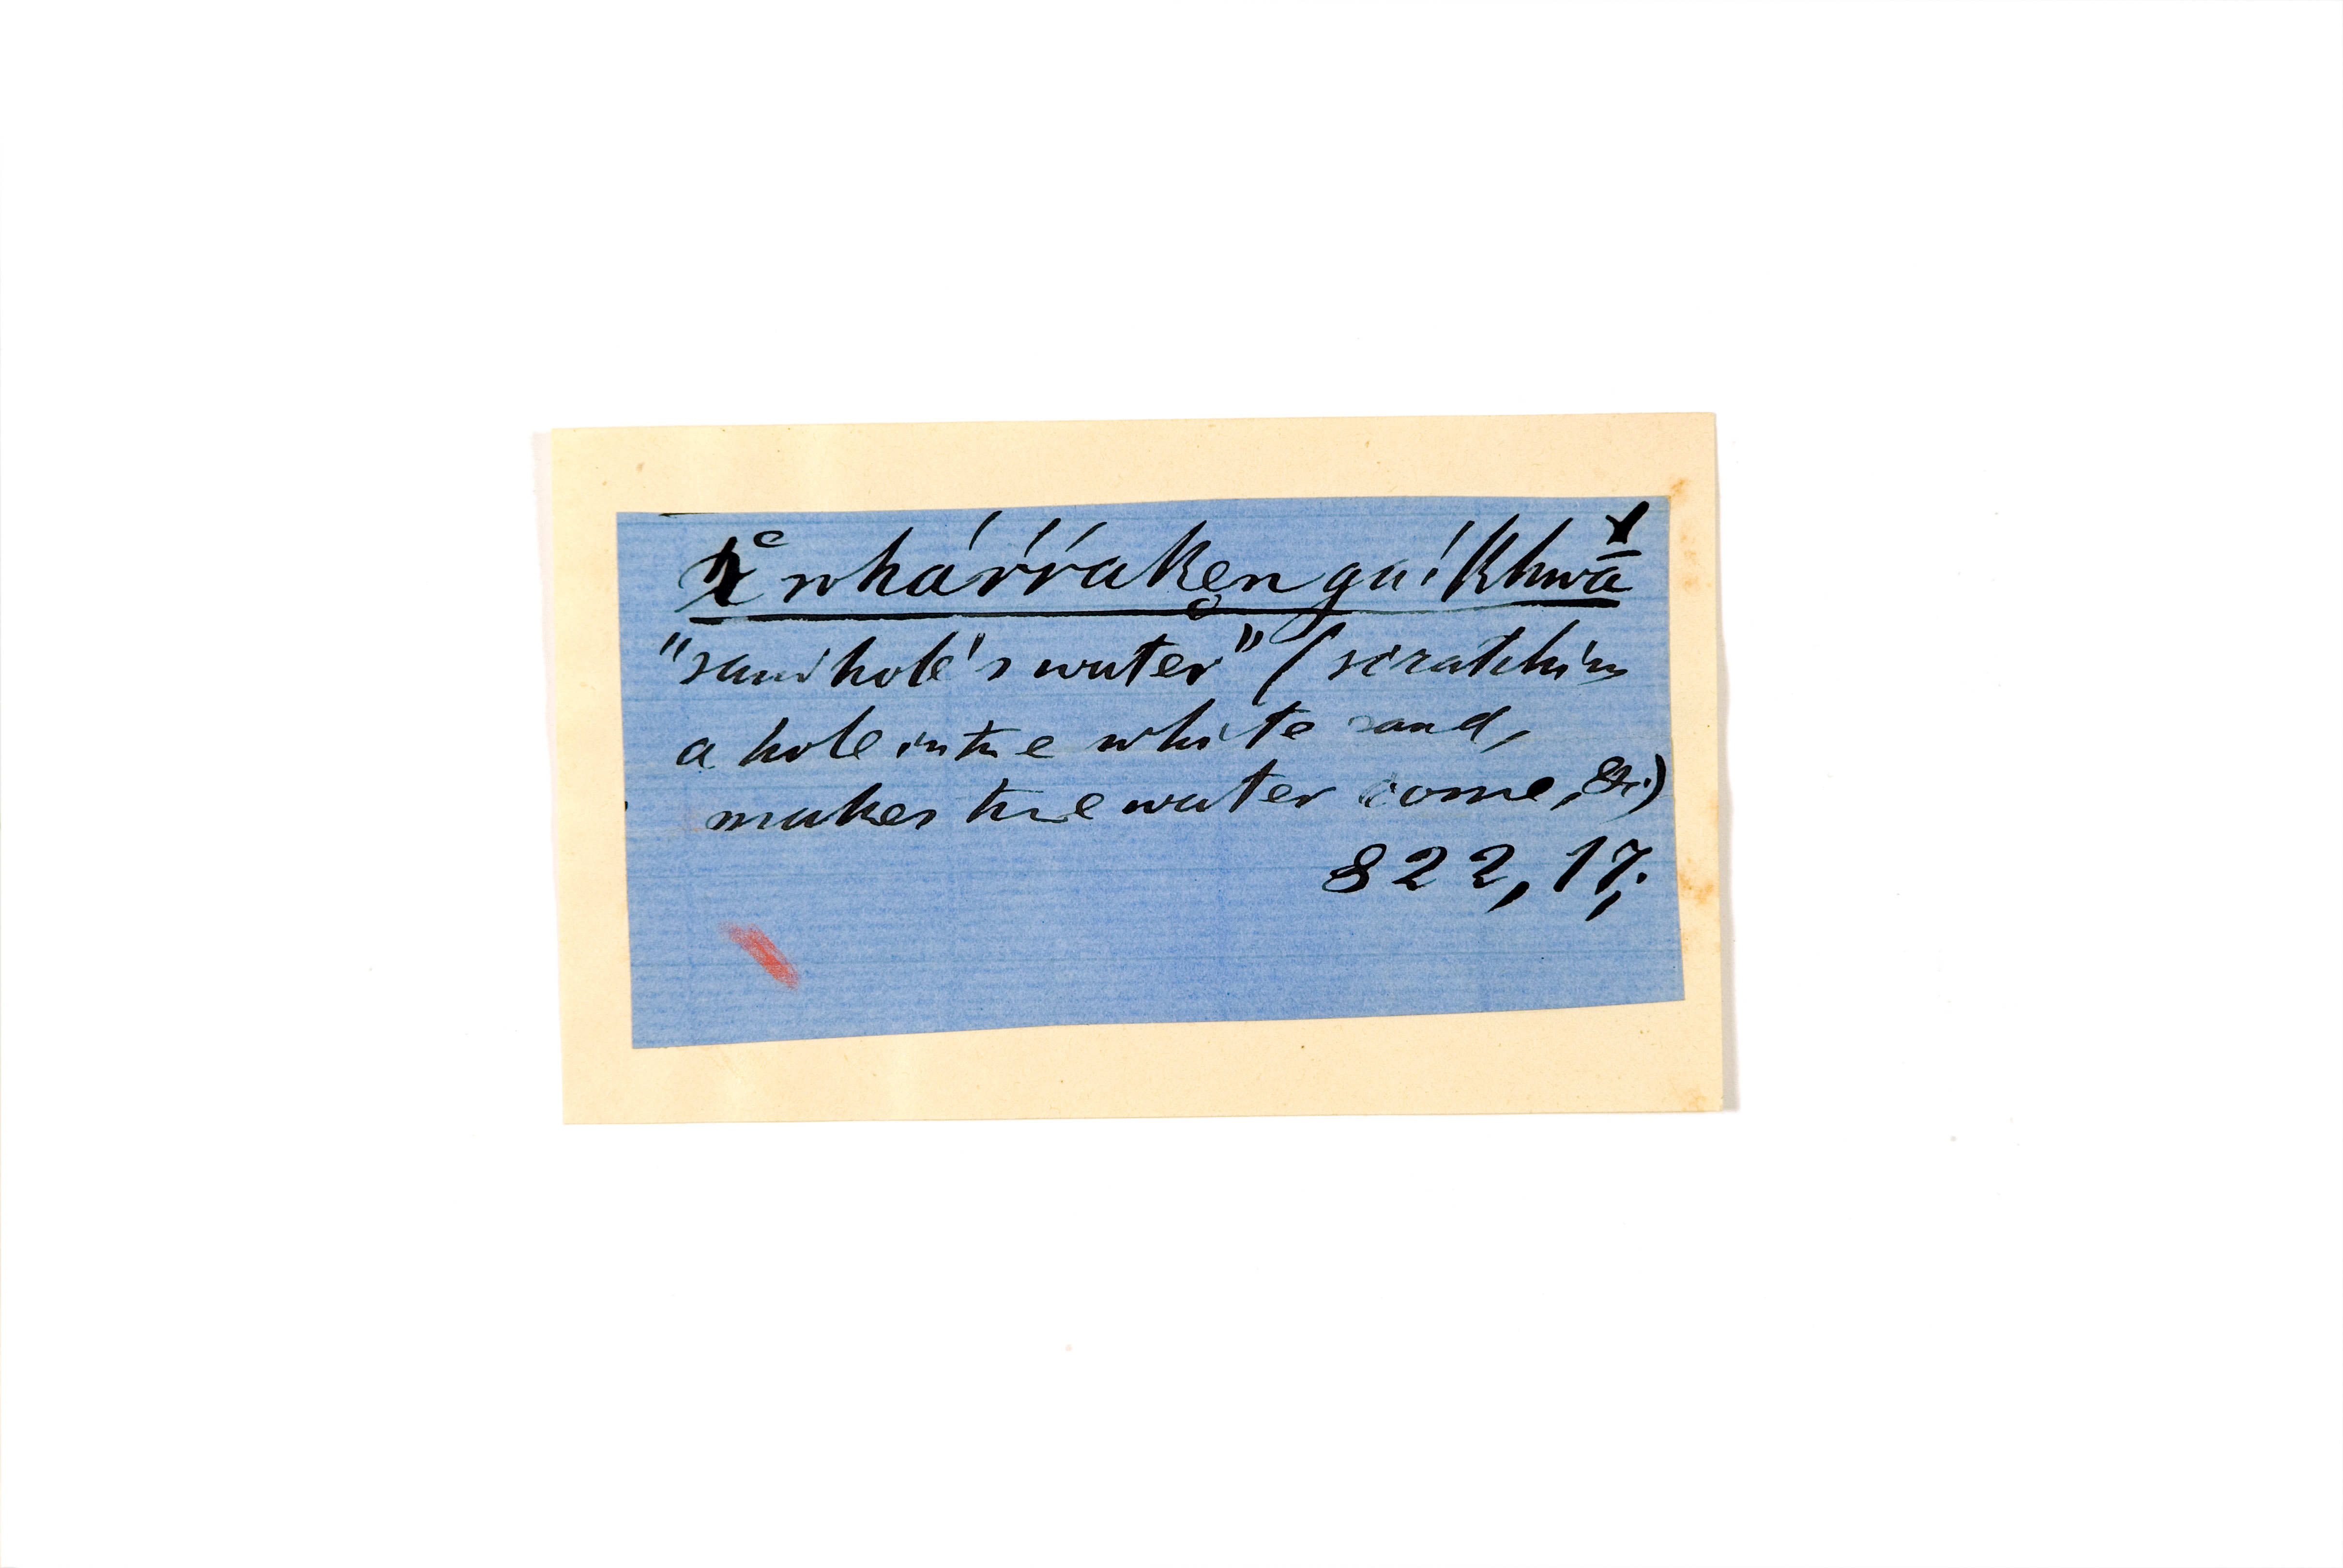 whárŕakengu!Khwā
"sandhole's water" (scratching
a hole in the white sand,
makes the water come, &c)
822, 17;